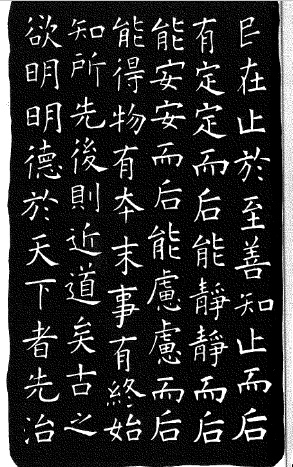 民在止於至善知止而后
有定定而后能靜靜而后
能安安而后能慮慮而后
能得物有本末事有終始
知所先後則近道矣古之
欲明明德於天下者先治